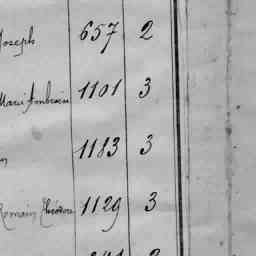 Joseph 657 2
Marie Ambroise 1101 3
1183 3
Romain Théodore 1129 3